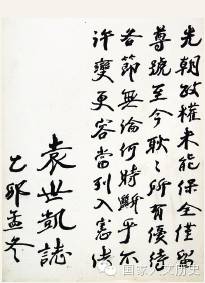 先朝政權未能保全僅留
尊號至今耿耿所有優待
各節無論何時斷乎不
許變更容當列入憲法
袁世凱誌
乙卯孟冬
国家人文历史